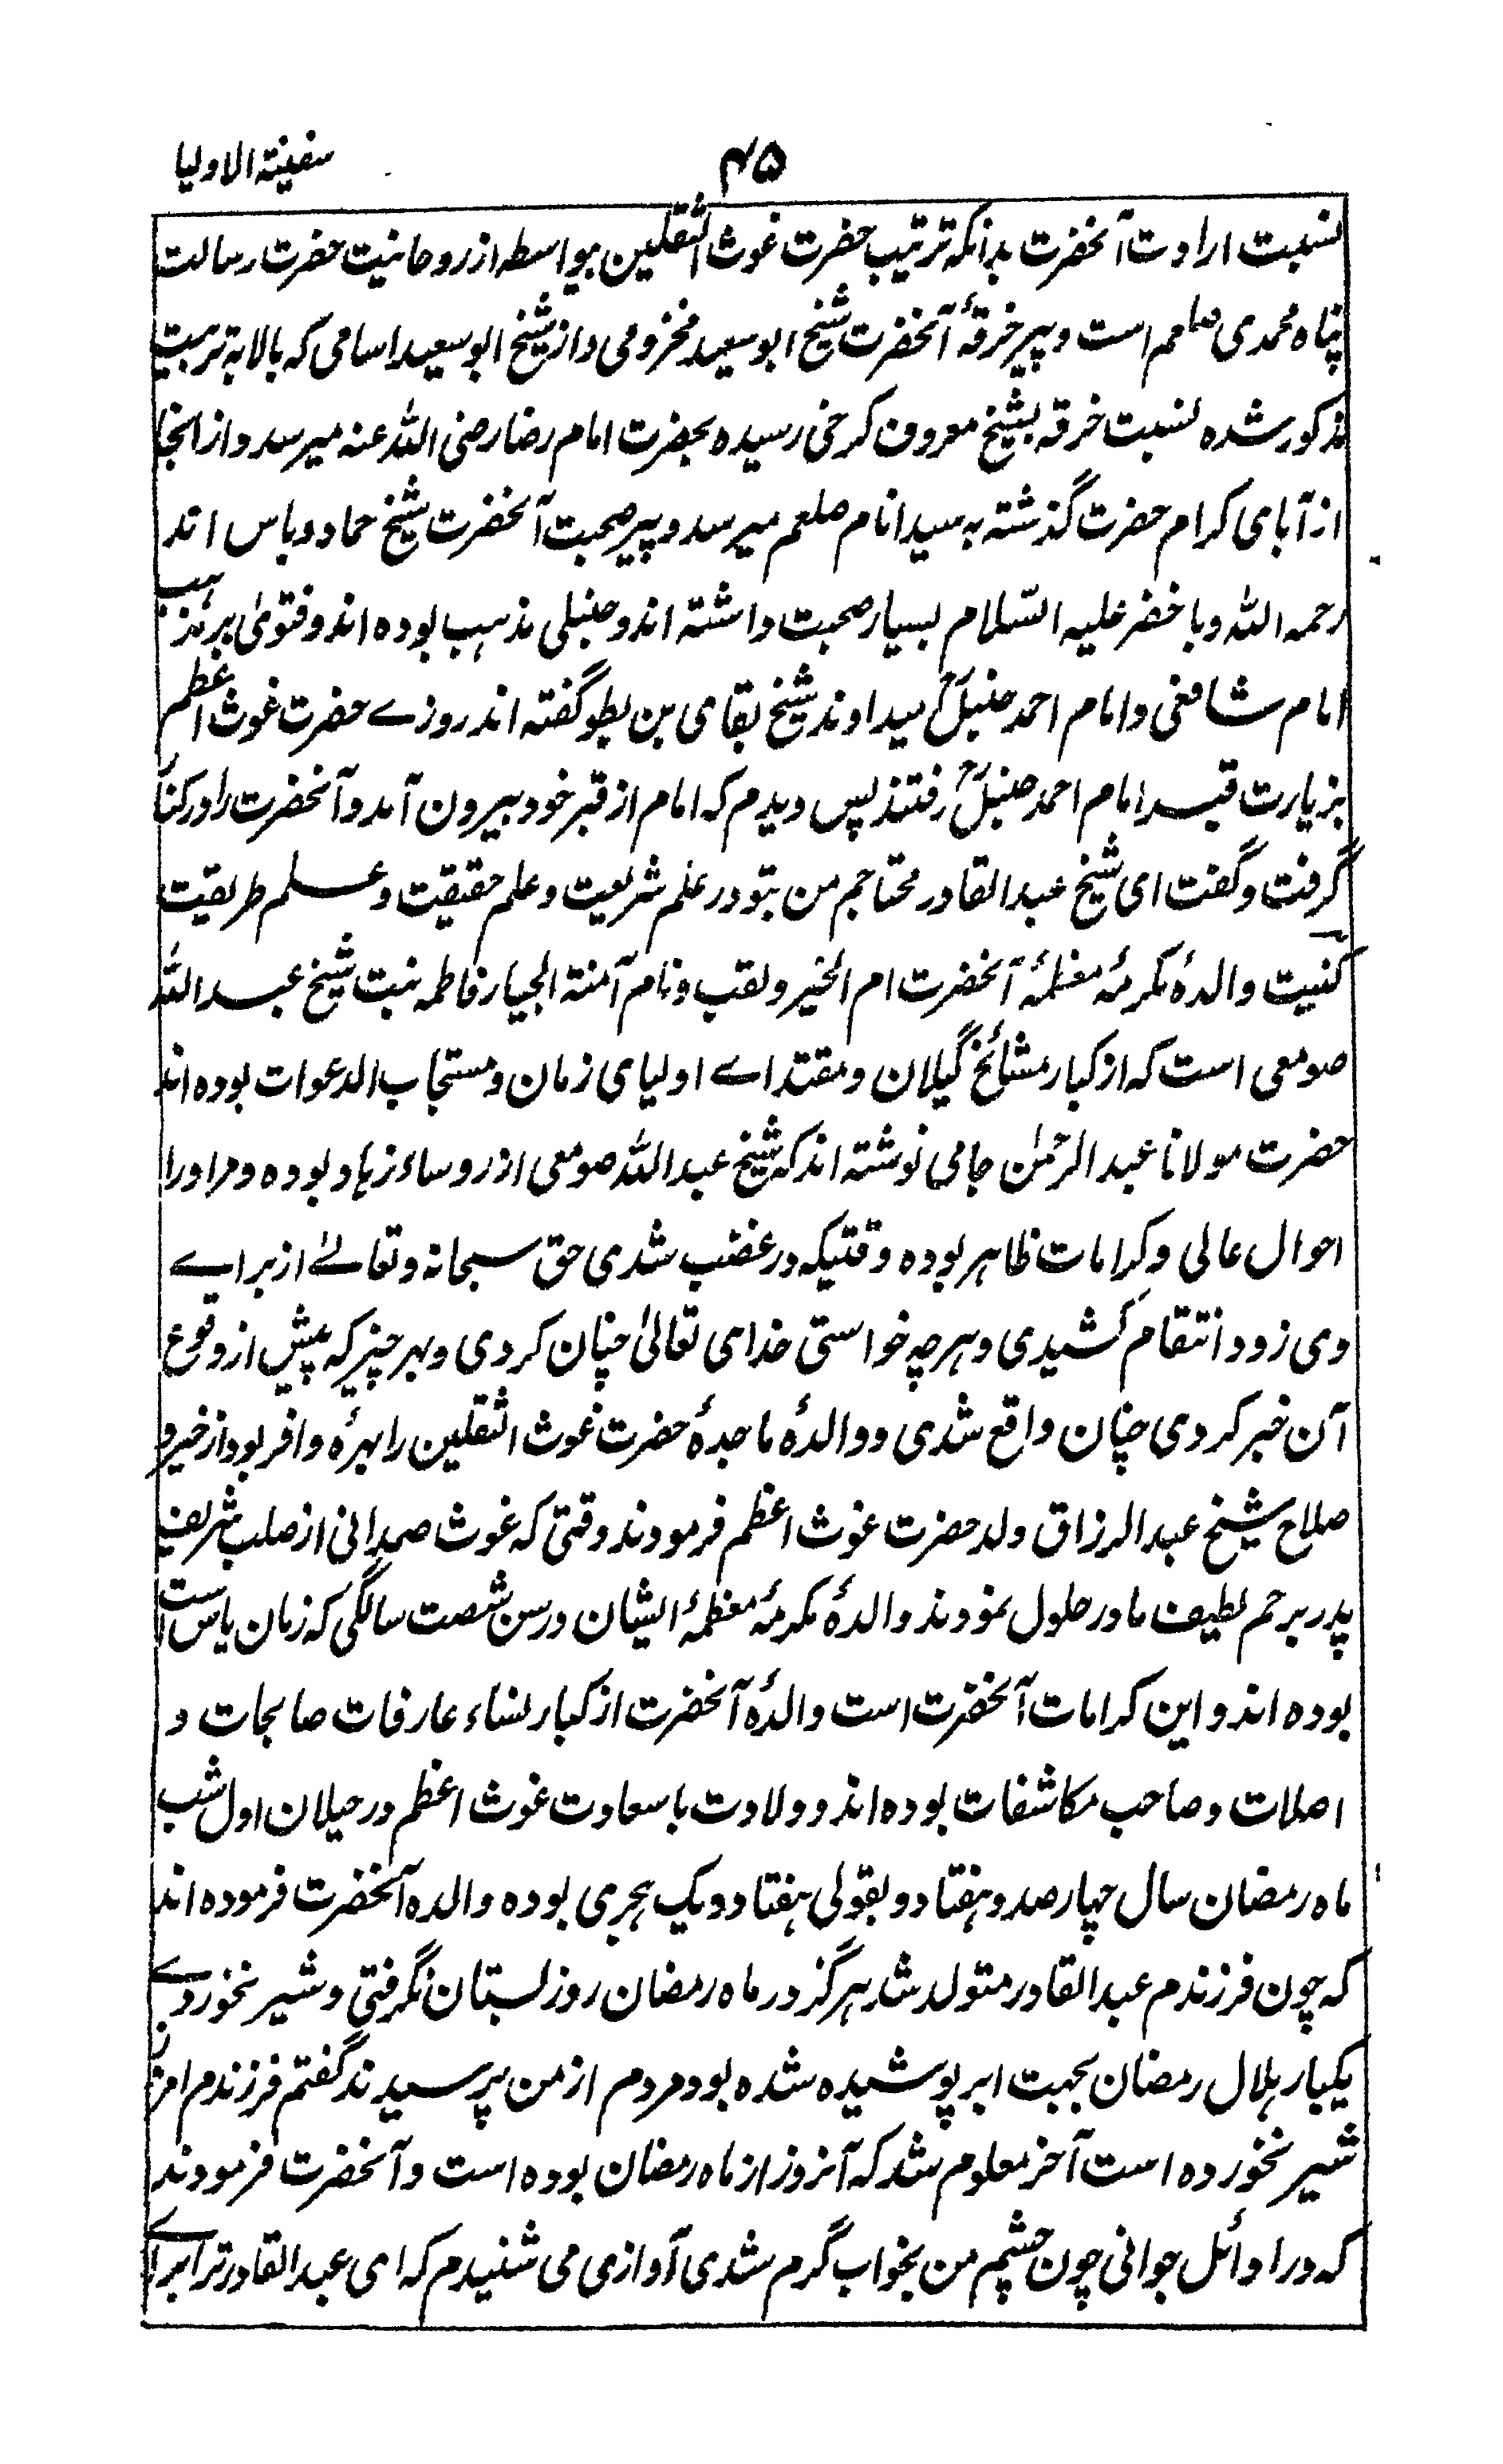 سفینة الاولیا
۴۵
نسبت ارادت آنحضرت بدانکه ترتیب حضرت غوث الثقلین بیواسطه از روحانیت حضرت رسالت
پناه محمدی صلعم است و پیر خرقهٔ آنحضرت شیخ ابوسعید مخزومی و از شیخ ابوسعید اسامی که بالا به ترتیب
مذکور شده نسبت خرقه بشیخ معروف کرخی رسیده بحضرت امام رضا رضی الله عنه میرسد و از آنجا
از آبای کرام حضرت گذشته به سید انام صلعم میرسد و پیر صحبت آنحضرت شیخ حماد دباس اند
رحمه الله و با خضر علیه السلام بسیار صحبت داشته اند و حنبلی مذهب بوده اند و فتوی بر مذهب
امام شافعی و امام احمد حنبلؒ میداوند شیخ بقای بن بطو گفته اند روزے حضرت غوث اعظم
بزیارت قبر امام احمد حنبلؒ رفتند پس دیدم که امام از قبر خود بیرون آمد و آنحضرت را در کنار
گرفت و گفت ای شیخ عبدالقادر محتاجم من بتو در علم شریعت و علم حقیقت و علم طریقت
کنیت والدهٔ مکرمهٔ معظمهٔ آنحضرت ام الخیر و لقب و نام آمنة الجبار فاطمه بنت شیخ عبدالله
صومعی است که از کبار مشائخ گیلان و مقتداے اولیای زمان و مستجاب الدعوات بوده اند
حضرت مولانا عبدالرحمٰن جامی نوشته اند که شیخ عبدالله صومعی از روساء زهاد بوده و مر او را
احوال عالی و کرامات ظاهر بوده وقتیکه در غضب شدی حق سبحانه و تعالےٰ از براے
وی زود انتقام کشیدی و هرچه خواستی خدای تعالیٰ چنان کردی و بهر چیز که پیش از وقوع
آن خبر کردی چنان واقع شدی و والدهٔ ماجدهٔ حضرت غوث الثقلین را بهرهٔ وافر بود از خیر و
صلاح شیخ عبدالرزاق ولد حضرت غوث اعظم فرمودند وقتی که غوث صمدانی از صلب شریف
پدر برحم لطیف مادر حلول نمودند والدهٔ مکرمهٔ معظمهٔ ایشان در سن شصت سالگی که زمان یاس است
بوده اند و این کرامات آنحضرت است والدهٔ آنحضرت از کبار نساء عارفات صابحات و
اصلات و صاحب مکاشفات بوده اند و ولادت باسعادت غوث اعظم در جیلان اول شب
ماه رمضان سال چهارصد و هفتاد و بقولی هفتاد و یک هجری بوده والده آنحضرت فرموده اند
که چون فرزندم عبدالقادر متولد شد هرگز در ماه رمضان روز پستان نگرفتی و شیر نخوردے
یکبار هلال رمضان بجهت ابر پوشیده شده بود مردم از من پرسیدند گفتم فرزندم امروز
شیر نخورده است آخر معلوم شد که آنروز از ماه رمضان بوده است و آنحضرت فرمودند
که در اوائل جوانی چون چشم من بخواب گرم شدی آوازی می شنیدم که ای عبدالقادر ترا براے